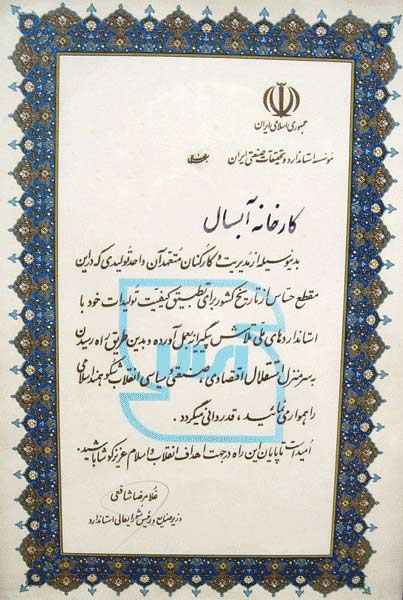 جمهوری اسلامی ایران
مؤسسه استاندارد و تحقیقات صنعتی ایران
کارخانه آبسال
بدینوسیله از مدیریت و کارکنان متعهد آن واحد تولیدی که در این
مقطع حساس از تاریخ کشور برای تطبیق کیفیت تولیدات خود با
استانداردهای ملی تلاش پیگیرانه بعمل آورده و بدین طریق راه رسیدن
به سرمنزل استقلال اقتصادی، صنعتی و سیاسی انقلاب شکوهمند اسلامی
را هموار می نمائید، قدردانی میگردد.
امید است تا پایان این راه در جهت اهداف انقلاب و اسلام عزیز کوشا باشید.
غلامرضا شافعی
وزیر صنایع و رئیس شورایعالی استاندارد